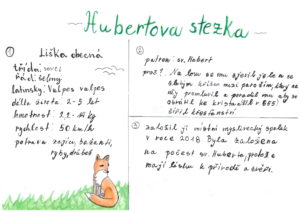 Hubertova stezka
①
Liška obecná
třída: savci
řád: šelmy
latinsky: Vulpes vulpes
délka života 2-5 let
hmotnost:
rychlost 50 km/h
potrava: zajíci, bažanti,
ryby, drůbež
②
patron: sv. Hubert
proč? Na lovu se mu zjevil jelen se
křížem mezi parožím, který na
něj promluvil a poradil mu aby se
obrátil ke křesťanství
šířil křesťanství
③
založil ji místní myslivecký spolek
v roce 2018 Byla založena
na počest sv. Huberta, protože
mají lásku k přírodě a zvěři.